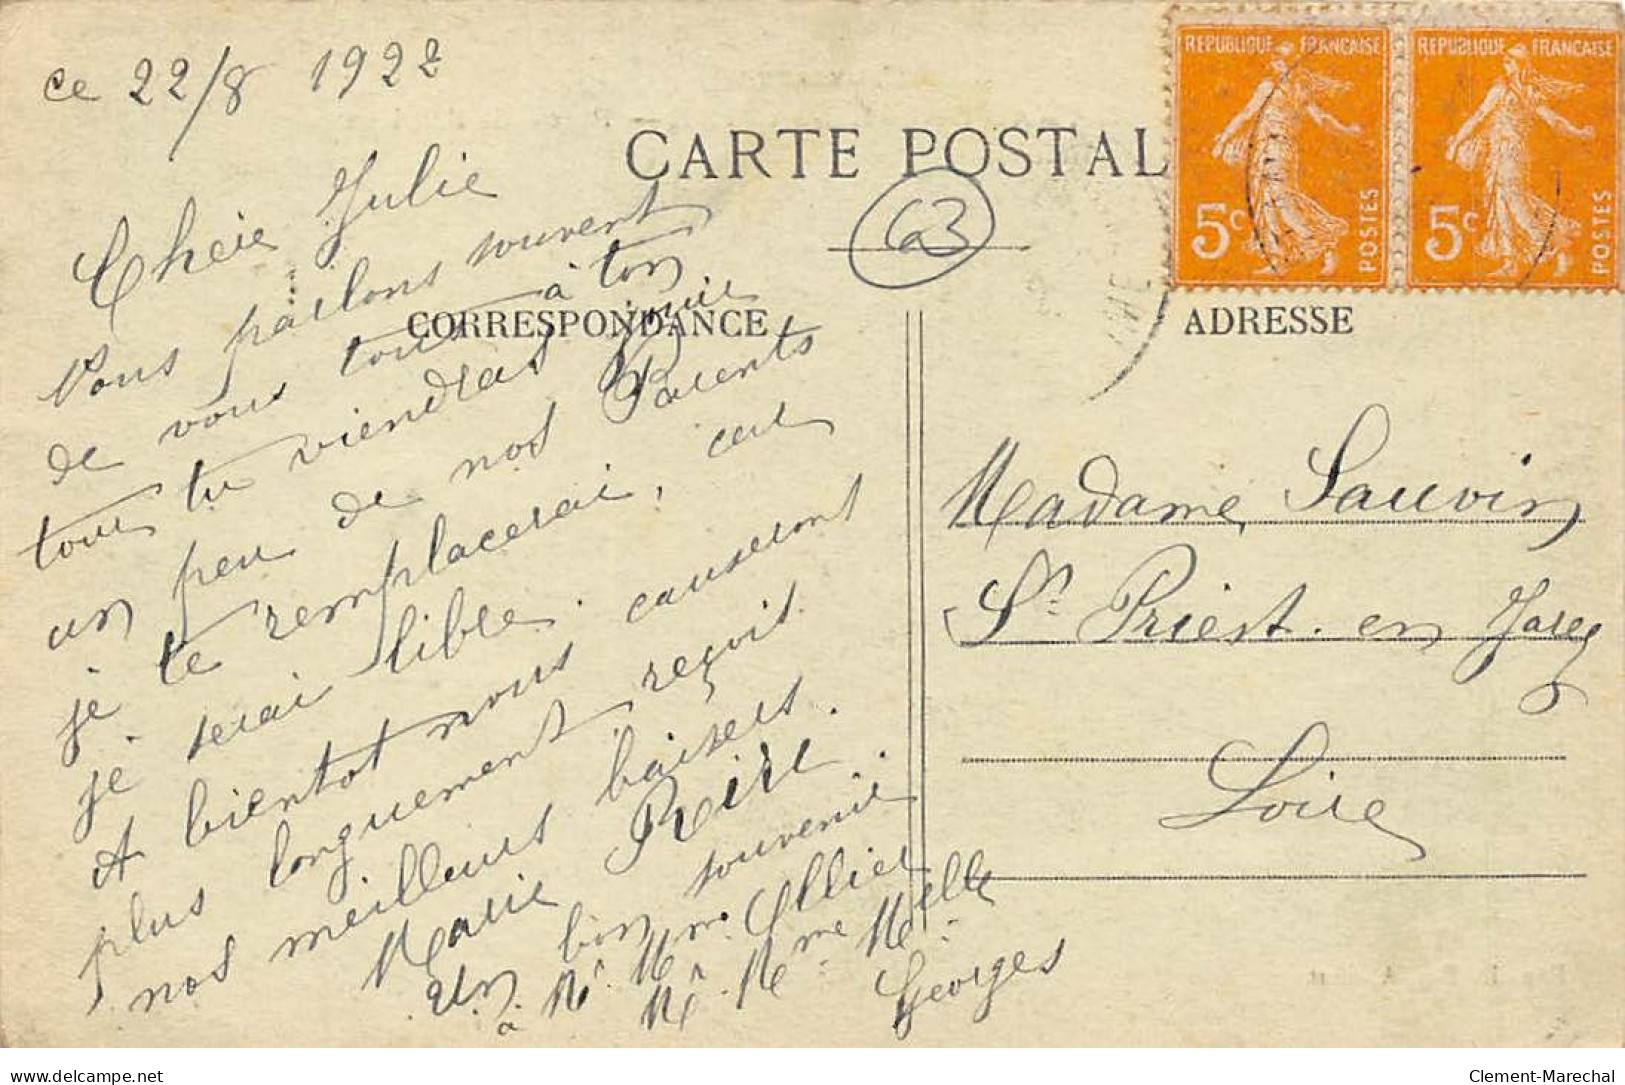 ce 22/8 1922
CARTE POSTAL
REPUBLIQUE FRANCAISE
5c POSTES
REPUBLIQUE FRANCAISE
5c POSTES
63
CORRESPONDANCE
ADRESSE
Cheie Julie
Nous parlons souvent
de vous tous à ton
tour tu viendras
un peu de nos Parents
je te remplacerai, car
je serai libre.
A bientot nous causeront
plus longuement reçois
nos meilleurs baisers.
Marie
Un bon souvenir.
à Mr Mme Ollier
Mr. Mme Melle
Georges
Madame Sauvin
St Priest. en Jarez
Loire
delcampe.net
Clement-Marechal